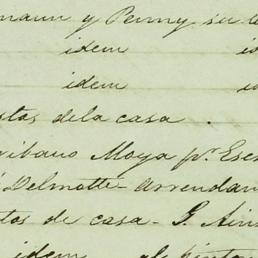 mann y Penny su
idem
idem
stos dela casa .
ribano Moya pr. Escr
Delmotte - arrendam
tos de casa - G.
idem al pintor